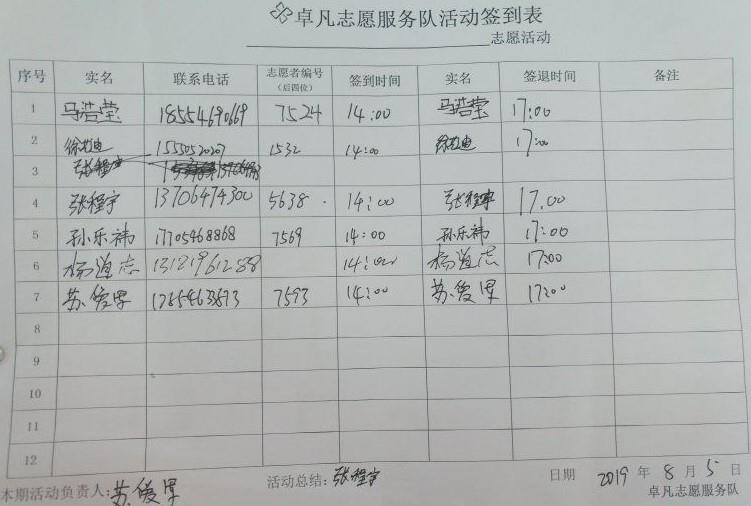 卓凡志愿服务队活动签到表
志愿活动
序号 实名 联系电话 志愿者编号（后四位） 签到时间 实名 签退时间 备注
1 马浩莹 18554690669 7524 14:00 马浩莹 17:00
2 1532 14:00 17:00
3 张程宇
4 张程宇 13706474300 5638 14:00 张程宇 17:00
5 孙乐祎 17705468868 7569 14:00 孙乐祎 17:00
6 杨道志 14:00 杨道志 17:00
7 苏爱军 7593 14:00 苏爱军 17:00
8
9
10
11
12
本期活动负责人:苏爱军 活动总结:张程宇 日期 2019年8月5日
卓凡志愿服务队